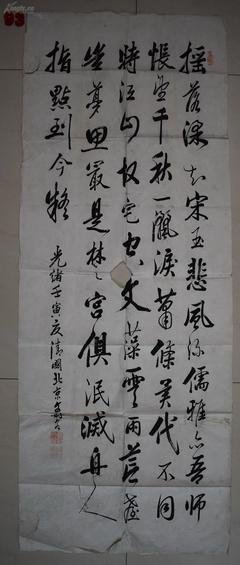 搖落深知宋玉悲風流儒雅亦吾師
悵望千秋一灑淚蕭條異代不同
時江山故宅空文藻雲雨荒臺
豈夢思最是楚宮俱泯滅舟人
指點到今疑
光緒壬寅夏清國北京